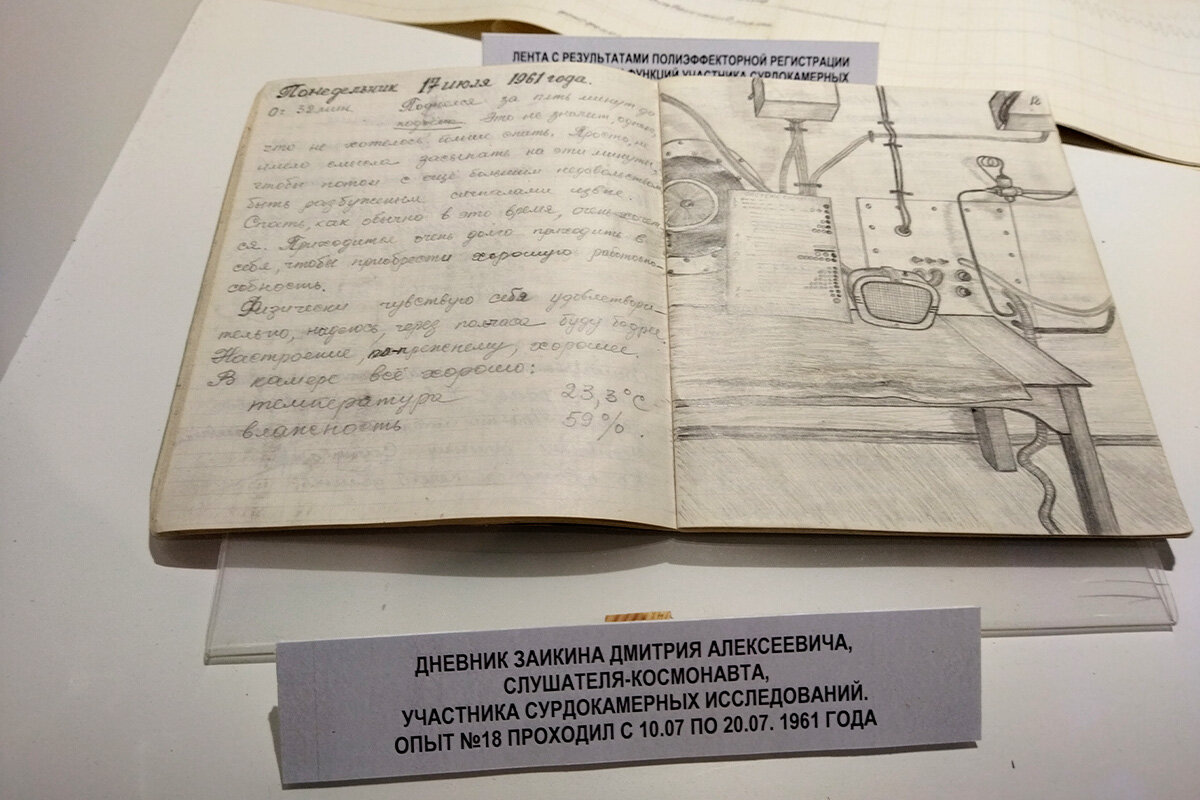 ЛЕНТА С РЕЗУЛЬТАТАМИ ПОЛИЭФФЕКТОРНОЙ РЕГИСТРАЦИИ
ФУНКЦИЙ УЧАСТНИКА СУРДОКАМЕРНЫХ
Понедельник 17 июля 1961 года.
0ч 32 мин. Поднялся за пять минут до
подъема. Это не значит, однако,
что не хотелось больше спать. Просто, не
имело смысла засыпать на эти минуты,
чтобы потом с ещё большим недовольством
быть разбуженым сигналами извне.
Спать, как обычно в это время, очень хочет-
ся. Приходится очень долго приходить в
себя, чтобы приобрести хорошую работоспо-
собность.
Физически чувствую себя удовлетвори-
тельно, надеюсь, через полчаса буду бодрее.
Настроение, по-прежнему, хорошее.
В камере всё хорошо:
температура 23,3°С
влажность 59% .
12
ДНЕВНИК ЗАИКИНА ДМИТРИЯ АЛЕКСЕЕВИЧА,
СЛУШАТЕЛЯ-КОСМОНАВТА,
УЧАСТНИКА СУРДОКАМЕРНЫХ ИССЛЕДОВАНИЙ.
ОПЫТ №18 ПРОХОДИЛ С 10.07 ПО 20.07. 1961 ГОДА